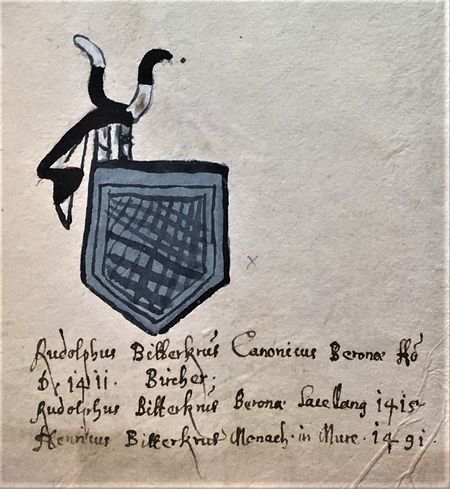 Rudolphus Bitterkrut Canonicus Beronæ
1411. Bircher;
Rudolphus Bitterkrut Beronæ 1415
Henricus Bitterkrut Monach. in Mure. 1491.